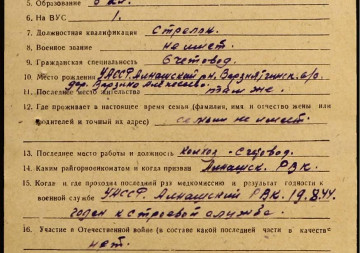 5. Образование 6 кл.
6. На ВУС 1.
7. Должностная квалификация Стрелок.
8. Военное звание не имет.
9. Гражданская специальность Счетовод.
10. Место рождения УАССР. Алнашский рн. Варзиятчинск. с/с
дер. Варзино Алексеево.
11. Последнее место жительства там же.
12. Где проживает в настоящее время семья (фамилия, имя и отчество жены или
родителей и точный их адрес) не имеет.
13. Последнее место работы и должность Счетовод.
14. Каким райгорвоенкоматом и когда призван Алнашск. РВК.
15. Когда и где проходил последний раз медкомиссию и результат годности к
военной службе УАССР. Алнашский РВК 19.8.44.
годен к строевой службе.
16. Участие в Отечественной войне (в составе какой последней части в качестве
нет.